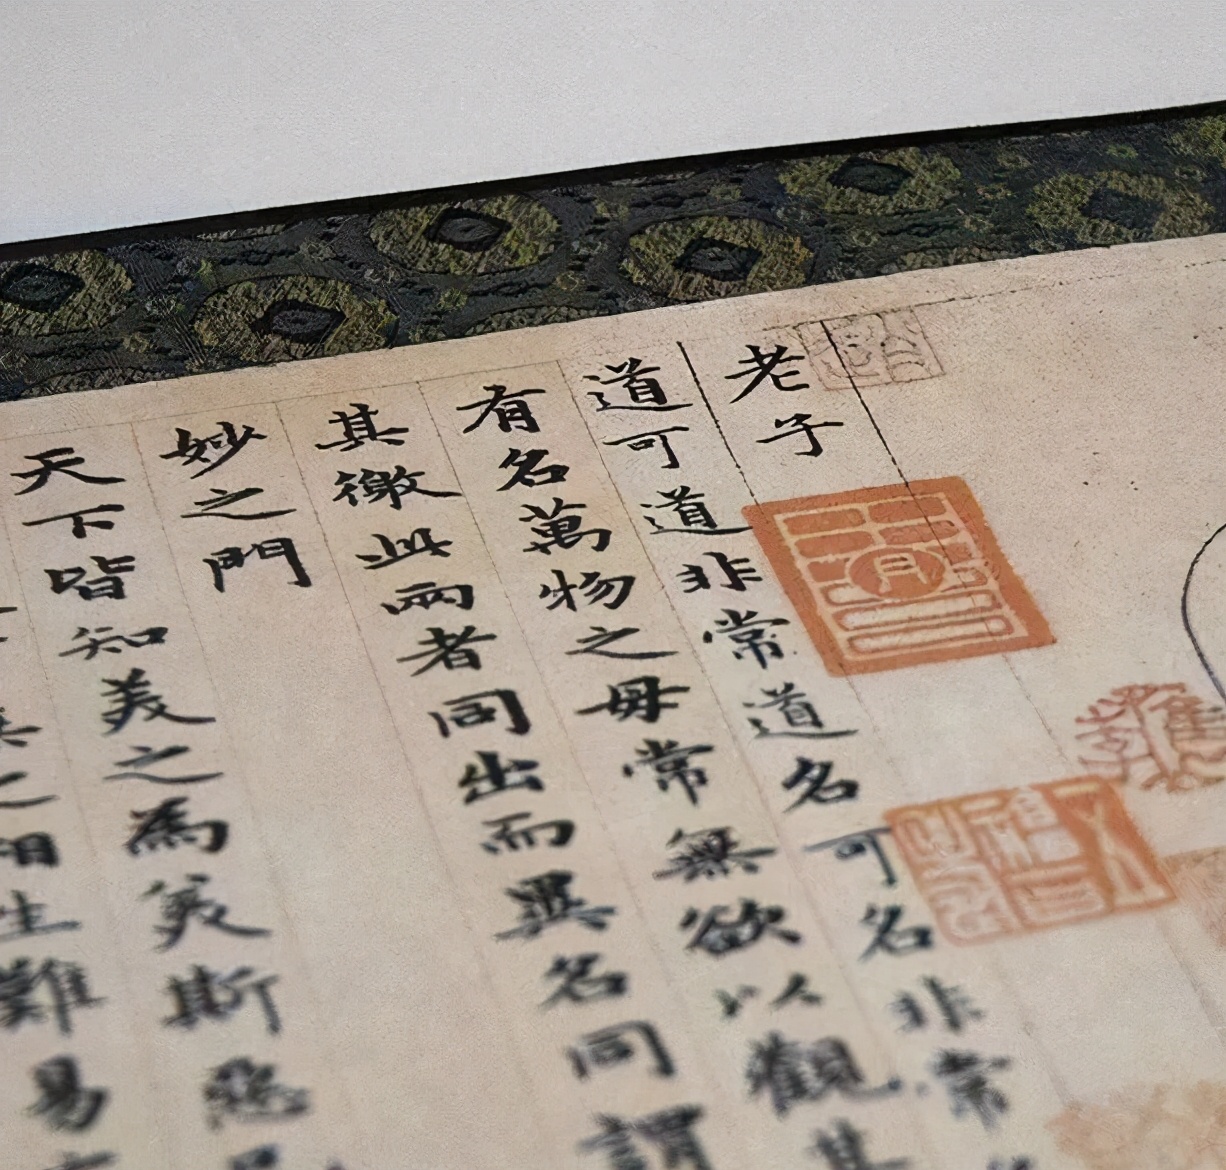 老子
道可道非常道名可名非常
有名萬物之母常無欲以觀其
其徼此兩者同出而異名同謂
妙之門
天下皆知美之為美斯惡
之相生難易